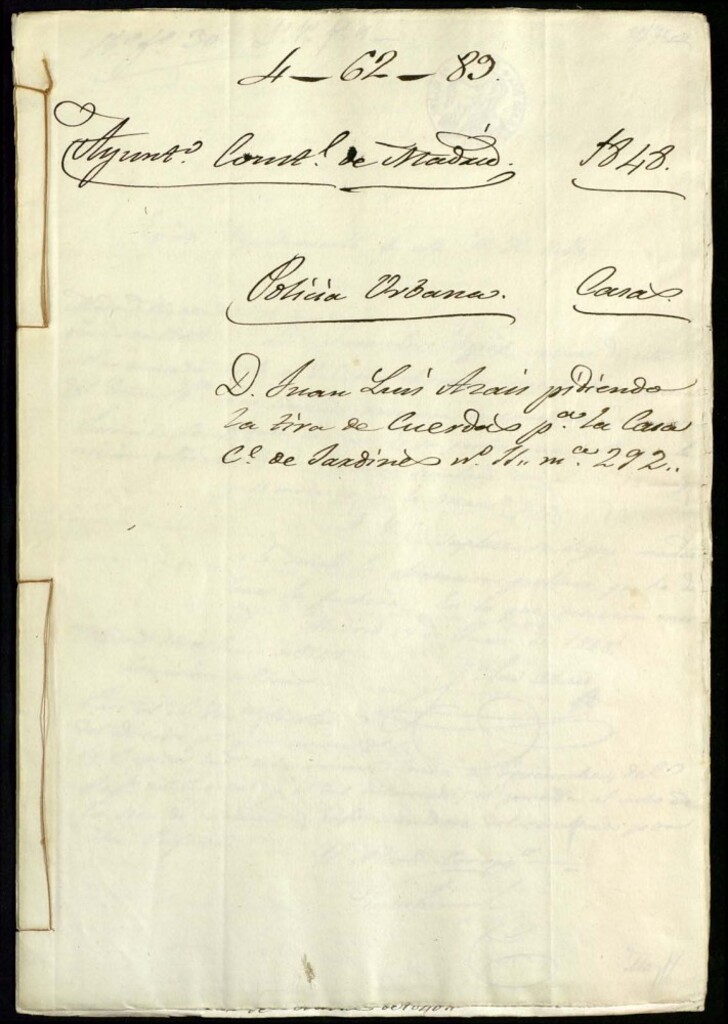 4 - 62 - 89.
Ayunt.º Const.l de Madrid. 1848.
Policia Urbana. Casas.
D. Juan Luis Arais pidiendo
la tira de Cuerdas p.a la Casa
C.e de Jardines n.º 11.. m.a 292..